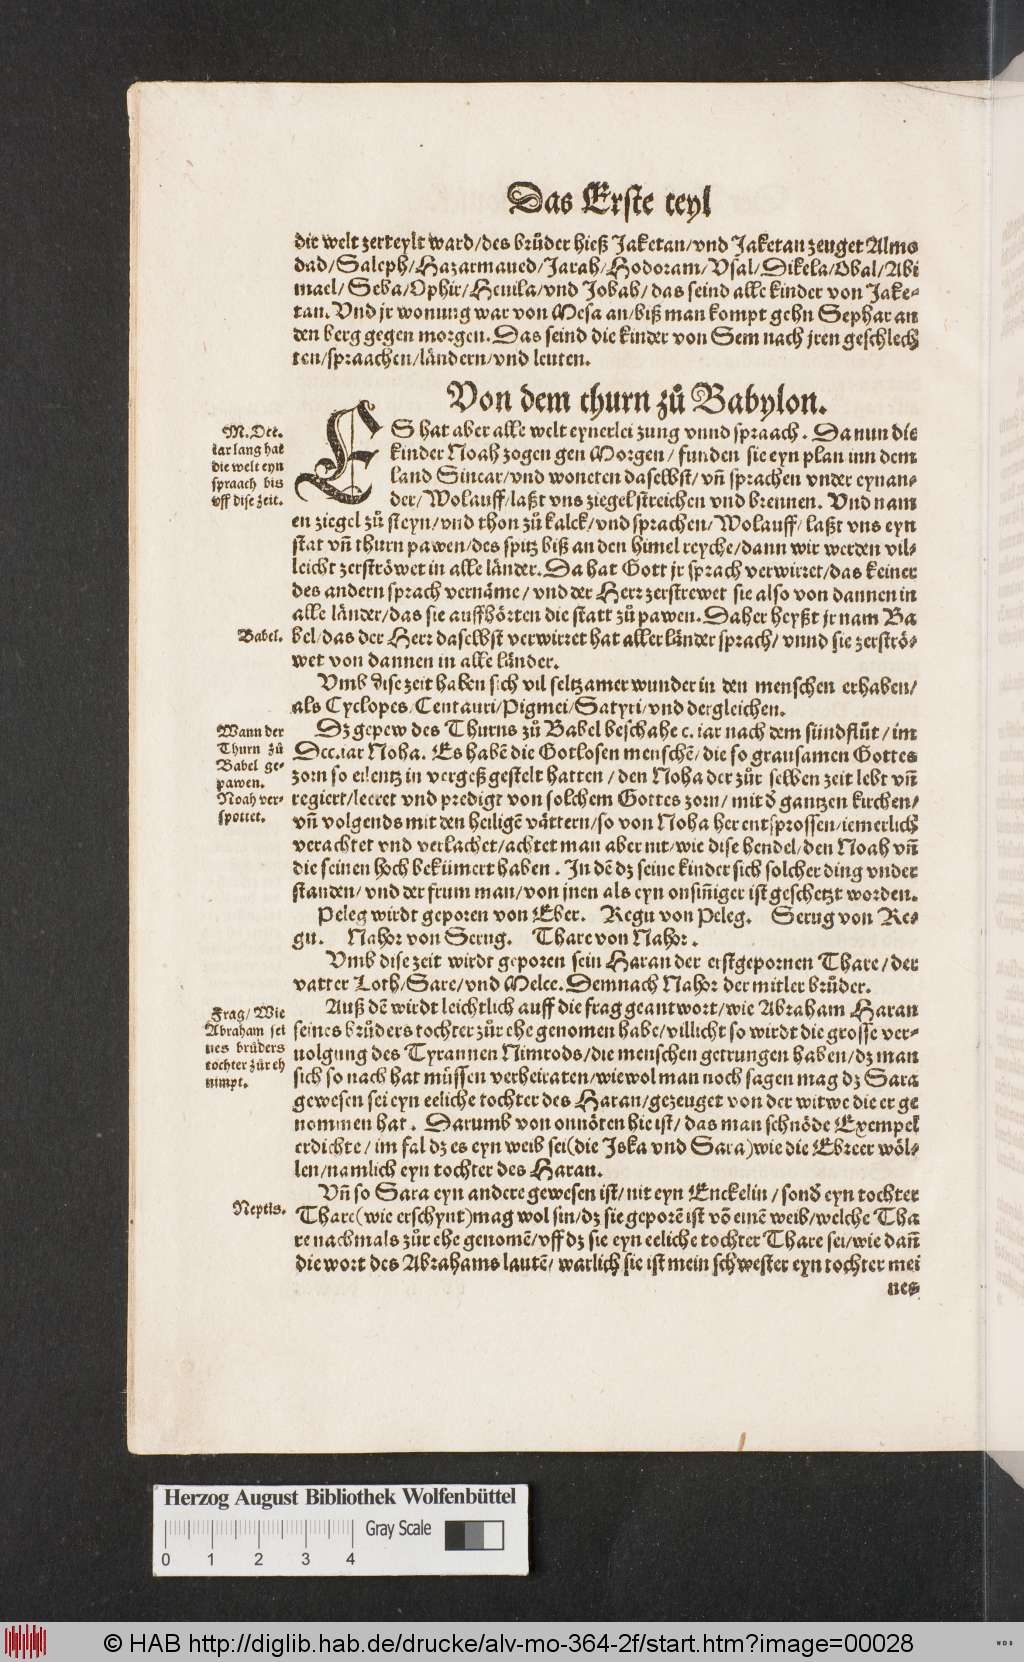 Das Erste teyl
die welt zerteylt ward/des brůder hieß Jaketan/vnd Jaketan zeuget Almo
dad/Saleph/Hazarmaued/Jarah/Hodoram/Vsal/Dikela/Obal/Abi
mael/Seba/Ophir/Heuila/vnd Jobab/das seind alle kinder von Jake-
tan. Vnd jr wonung war von Mesa an/biß man kompt gehn Sephar an
den berg gegen morgen. Das seind die kinder von Sem nach jren geschlech
ten/spraachen/ländern/vnd leuten.
Von dem thurn zů Babylon.
M. Dcc.
iar lang hat
die welt eyn
spraach bis
vff dise zeit.
ES hat aber alle welt eynerlei zung vnnd spraach. Da nun die
kinder Noah zogen gen Morgen/funden sie eyn plan inn dem
land Sinear/vnd woneten daselbst/vñ sprachen vnder eynan-
der/Wolauff/laßt vns ziegel streichen vnd brennen. Vnd nam
en ziegel zů steyn/vnd thon zů kalck/vnd sprachen/Wolauff/laßt vns eyn
stat vñ thurn pawen/des spitz biß an den himel reyche/dann wir werden vil-
leicht zerströwet in alle länder. Da hat Gott jr sprach verwirret/das keiner
des andern sprach vernäme/vnd der Herr zerstrewet sie also von dannen in
alle länder/das sie auffhörten die statt zů pawen. Daher heyßt jr nam Ba
Babel.
bel/das der Herr daselbst verwirret hat aller länder sprach/vnnd sie zerströ-
wet von dannen in alle länder.
Vmb dise zeit haben sich vil seltzamer wunder in den menschen erhaben/
als Cyclopes/Centauri/Pigmei/Satyri/vnd dergleichen.
Wann der
Thurn zů
Babel ge-
pawen.
Noah ver-
spottet.
Dz gepew des Thurns zů Babel beschahe c. iar nach dem sündflůt/im
Dcc. iar Noha. Es habẽ die Gotlosen menschẽ/die so grausamen Gottes
zorn so eilentz in vergeß gestelt hatten/den Noha der zůr selben zeit lebt vñ
regiert/leeret vnd predigt von solchem Gottes zorn/mit d̃ gantzen kirchen/
vñ volgends mit den heiligẽ vättern/so von Noha her entsprossen/iemerlich
verachtet vnd verlachet/achtet man aber nit/wie dise hendel/den Noah vñ
die seinen hoch bekümert haben. In dẽ dz seine kinder sich solcher ding vnder
standen/vnd der frum man/von jnen als eyn onsiñiger ist geschetzt worden.
Peleg wirdt geporen von Eber. Regu von Peleg. Serug von Re-
gu. Nahor von Serug. Thare von Nahor.
Vmb dise zeit wirdt geporen sein Haran der erstgepornen Thare/der
vatter Loth/Sare/vnd Melce. Demnach Nahor der mitler brůder.
Frag/Wie
Abraham sei
nes brůders
tochter zůr eh
nimpt.
Auß dẽ wirdt leichtlich auff die frag geantwort/wie Abraham Haran
seines brůders tochter zůr ehe genomen habe/villicht so wirdt die grosse ver-
uolgung des Tyrannen Nimrods/die menschen getrungen haben/dz man
sich so nach hat müssen verheiraten/wiewol man noch sagen mag dz Sara
gewesen sei eyn eeliche tochter des Haran/gezeuget von der witwe die er ge
nommen hat. Darumb von onnöten hie ist/das man schnöde Exempel
erdichte/im fal dz es eyn weib sei (die Iska vnd Sara) wie die Ebreer wöl-
len/namlich eyn tochter des Haran.
Neptis.
Vñ so Sara eyn andere gewesen ist/nit eyn Enckelin/sond̃ eyn tochter
Thare (wie erschynt) mag wol sin/dz sie geporẽ ist võ einẽ weib/welche Tha
re nachmals zůr ehe genomẽ/vff dz sie eyn eeliche tochter Thare sei/wie dañ
die wort des Abrahams lautẽ/warlich sie ist mein schwester eyn tochter mei
nes
Herzog August Bibliothek Wolfenbüttel
Gray Scale
0 1 2 3 4
© HAB http://diglib.hab.de/drucke/alv-mo-364-2f/start.htm?image=00028